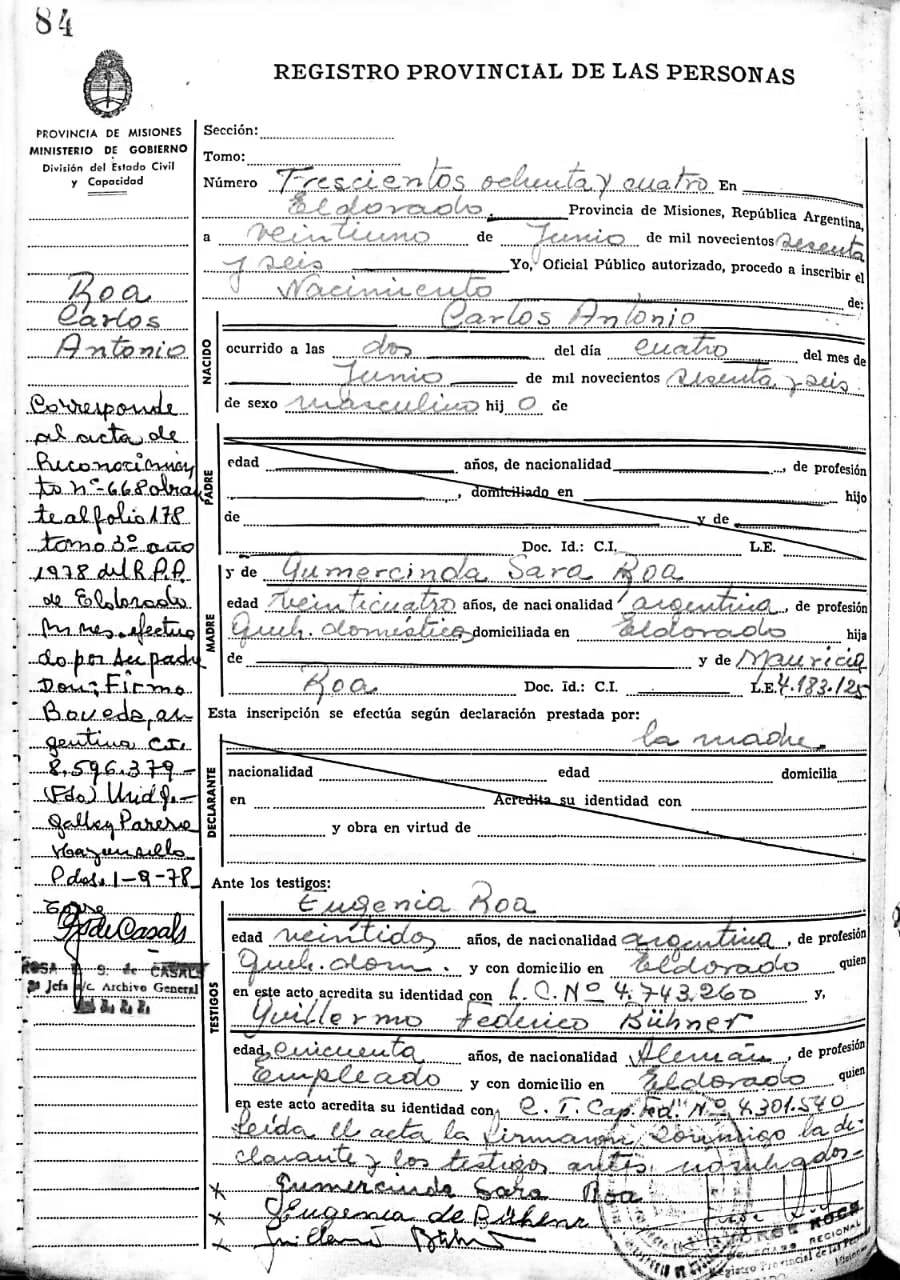 84
REGISTRO PROVINCIAL DE LAS PERSONAS
PROVINCIA DE MISIONES
MINISTERIO DE GOBIERNO
División del Estado Civil
y Capacidad
Roa
Carlos
Antonio
Corresponde
al acta de
Reconocimien
to nº-668 obra
te al folio 178
tomo 3º año
1978 del R.P.P.
de Eldorado
Mnes. efectua
do por su padre
Don: Firmo
Boveda, ar
gentina C.I.
8.596.379-
(Fdo)
Pdas. 1-9-78
G. de Casals
ROSA G. de CASALS
Jefa a/c. Archivo General
Sección:
Tomo:
Número Trescientos ochenta y cuatro En
Eldorado. Provincia de Misiones, República Argentina,
a veintiuno de Junio de mil novecientos sesenta
y seis Yo, Oficial Público autorizado, procedo a inscribir el
Nacimiento de:
NACIDO
Carlos Antonio
ocurrido a las dos del día cuatro del mes de
Junio de mil novecientos sesenta y seis.
de sexo masculino hij o de
PADRE
edad años, de nacionalidad , de profesión
, domiciliado en hijo
de y de
Doc. Id.: C.I. L.E.
MADRE
y de Gumercinda Sara Roa
edad veinticuatro años, de nacionalidad argentina, de profesión
Queh. domésticos domiciliada en Eldorado hija
de y de Mauricia
Roa Doc. Id.: C.I. L.E. 4.183.125
Esta inscripción se efectúa según declaración prestada por:
DECLARANTE
la madre.
nacionalidad edad domicilia
en Acredita su identidad con
y obra en virtud de
Ante los testigos:
TESTIGOS
Eugenia Roa
edad veintidos años, de nacionalidad argentina, de profesión
Queh. dom. y con domicilio en Eldorado quien
en este acto acredita su identidad con L.C. Nº 4.743.260 y,
Guillermo Federico Bühner
edad cincuenta años, de nacionalidad Alemán, de profesión
Empleado y con domicilio en Eldorado quien
en este acto acredita su identidad con C.I. Cap. Fed. Nº 4.301.540
Leída el acta la firmaron conmigo la de-
clarante y los testigos antes
x Gumercinda Sara Roa
x Eugenia de Bühner
x Guillermo Bühner
JORGE ROCA
DELEGADO REGIONAL
Registro Provincial de las Personas